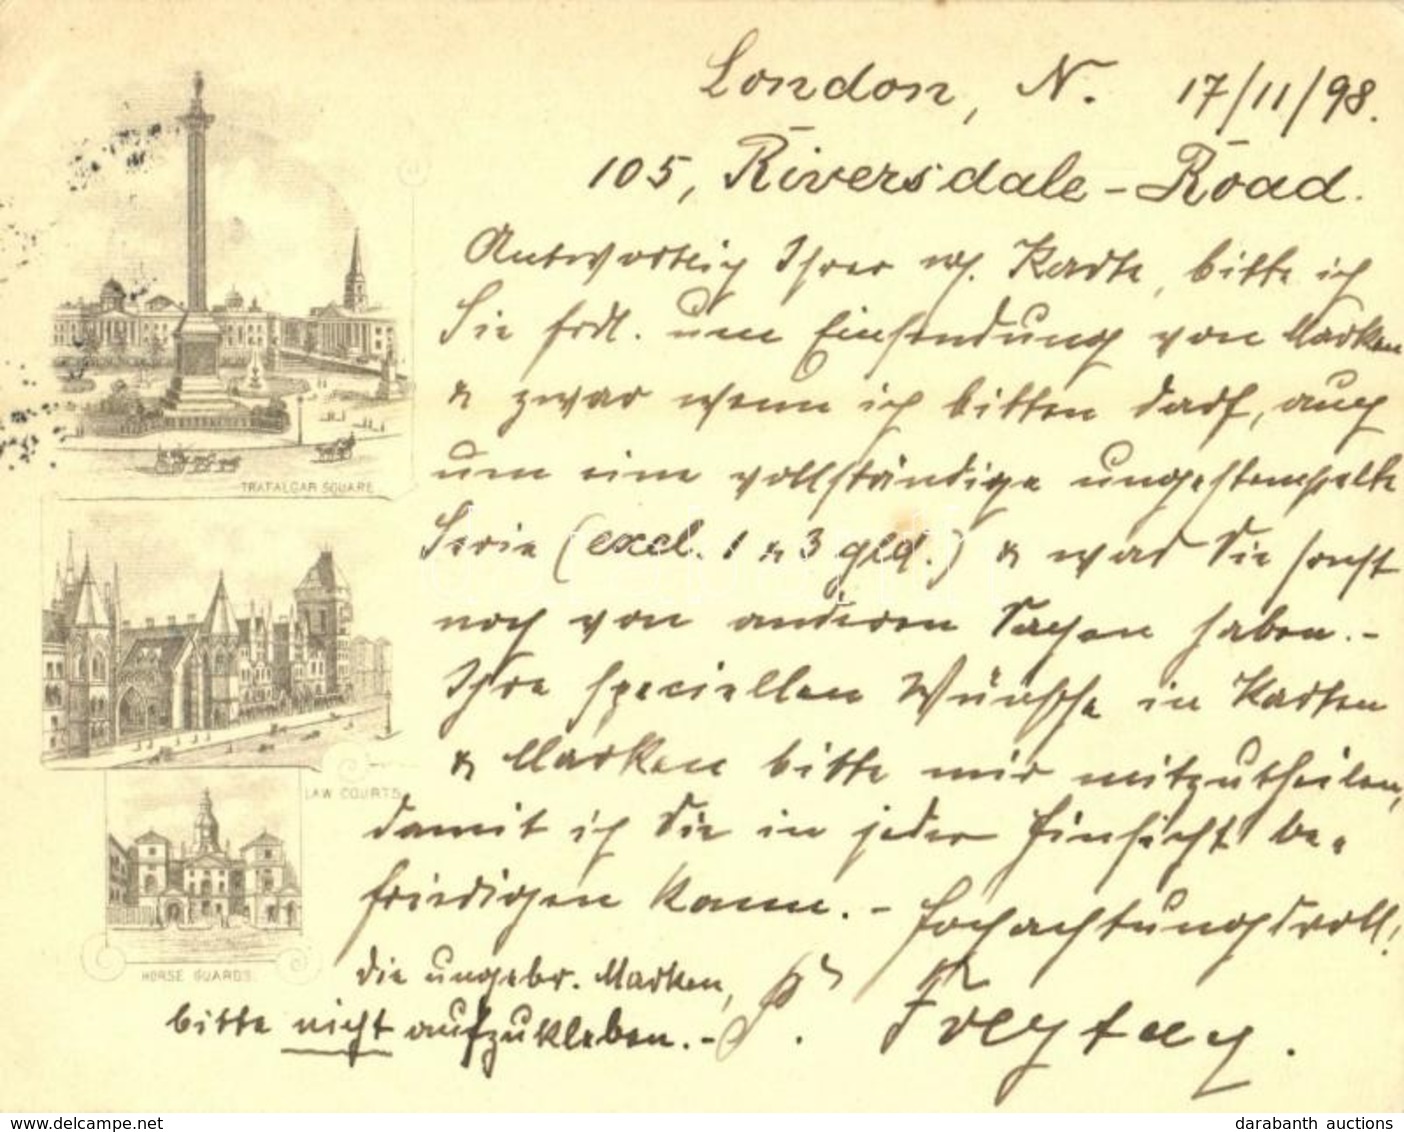 London, N. 17/11/98.
105, Riversdale-Road.
Antwortlich Ihrer w. Karte, bitte ich
Sie frdl. um Einsendung von Marken
& zwar wenn ich bitten darf, auch
um eine vollständige ungestempelte
Serie (excl. 1 & 3 gld.) & was Sie sonst
noch von anderen Sachen haben.-
Ihre speciellen Wünsche in Karten
& Marken bitte mir mitzutheilen,
damit ich Sie in jeder Hinsicht be-
friedigen kann. - Hochachtungsvoll!
die ungebr. Marken,
bitte nicht aufzukleben.-
TRAFALGAR SQUARE
LAW COURTS
HORSE GUARDS
delcampe.net
darabanth
darabanth auctions